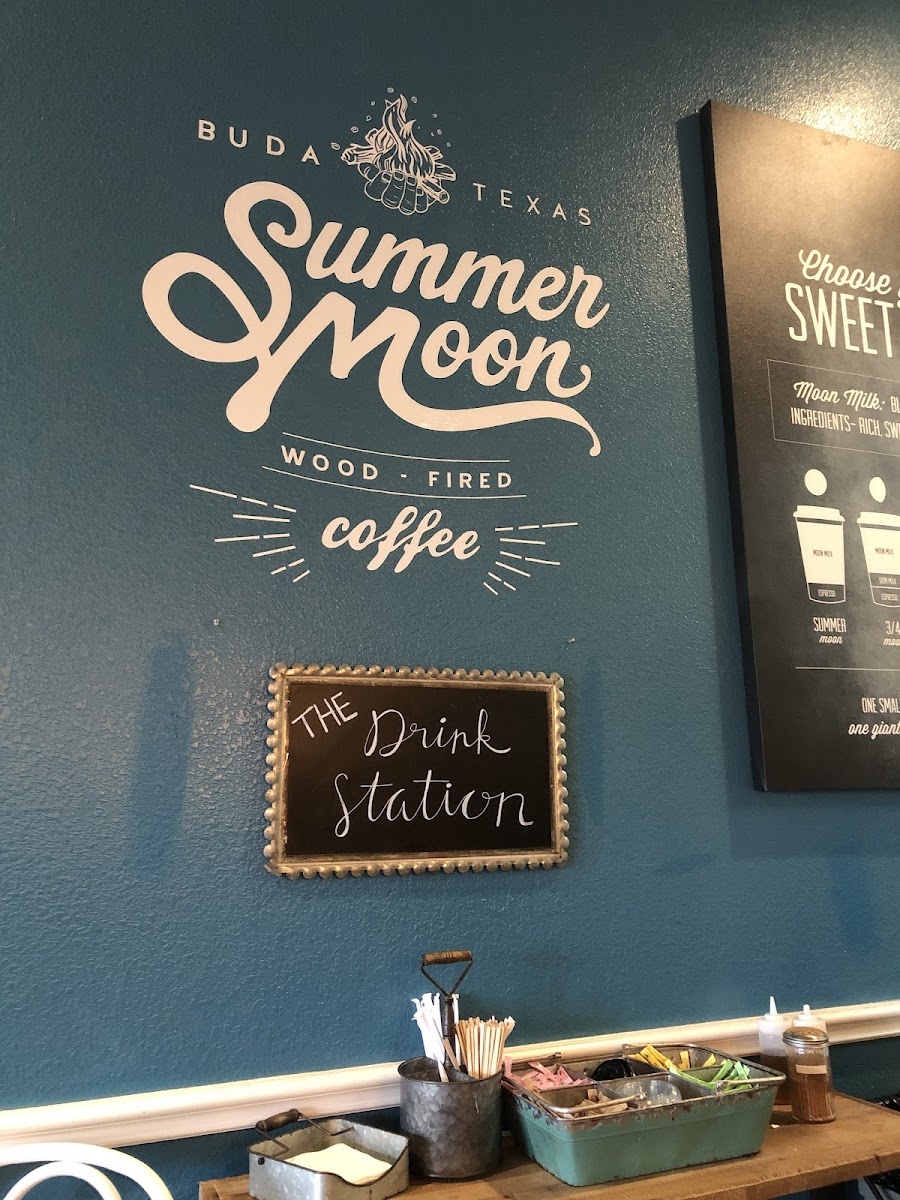 BUDA TEXAS
Summer
Moon
WOOD - FIRED
coffee
THE Drink
Station
Choose
SWEET
Moon Milk:
INGREDIENTS- RICH,
MOON MILK
ESPRESSO
MOON MILK
ESPRESSO
SUMMER
moon
3/4
ONE
one